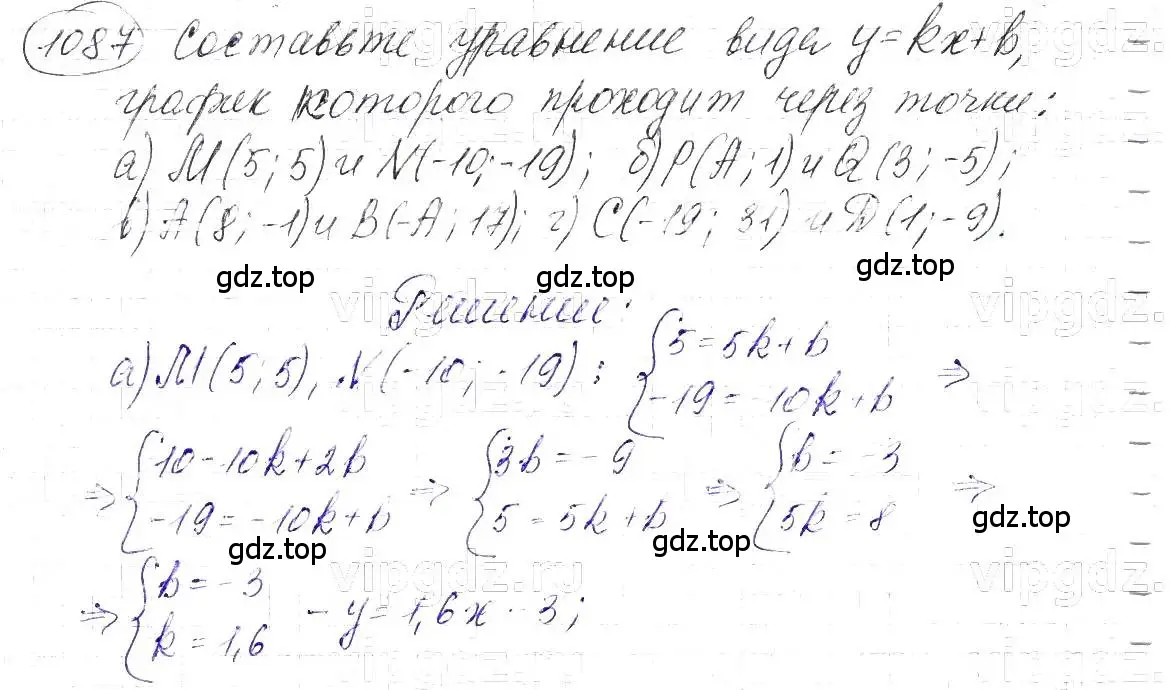 1087 Составьте уравнение вида y=kx+b,
график которого проходит через точки:
а) M(5; 5) и N(-10; -19); б) P(A; 1) и Q(3; -5);
в) A(8; -1) и B(-A; 17); г) C(-19; 31) и D(1; -9).
gdz.top gdz.top gdz.top
vipgdz.ru
Решение:
а) M(5; 5), N(-10; -19): { 5 = 5k + b
-19 = -10k + b ⇒
⇒ { 10 - 10k + 2b ⇒ { 3b = -9 ⇒ { b = -3 ⇒
-19 = -10k + b 5 = 5k + b 5k = 8
gdz.top gdz.top gdz.top
vipgdz.ru
⇒ { b = -3
k = 1,6 - y = 1,6x - 3;